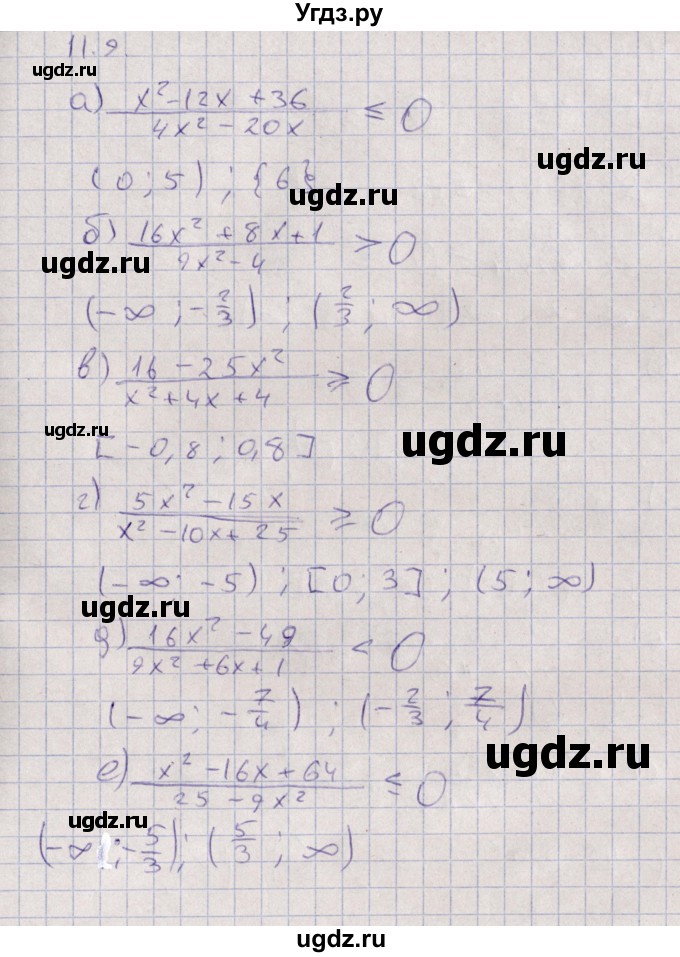 Угдз.ру
11.9.
ugdz.ru
а) (x² - 12x + 36)/(4x² - 20x) ≤ 0
ugdz.ru
(0; 5); {6}
ugdz.ru
б) (16x² + 8x + 1)/(9x² - 4) > 0
ugdz.ru
ugdz.ru
(-∞; -2/3); (2/3; ∞)
в) (16 - 25x²)/(x² + 4x + 4) ≥ 0
ugdz.ru
[-0,8; 0,8]
ugdz.ru
г) (5x² - 15x)/(x² - 10x + 25) ≥ 0
(-∞; -5); [0; 3]; (5; ∞)
ugdz.ru
д) (16x² - 49)/(9x² + 6x + 1) < 0
ugdz.ru
(-∞; -7/4); (-2/3; 7/4)
ugdz.ru
е) (x² - 16x + 64)/(25 - 9x²) ≤ 0
ugdz.ru
(-∞; -5/3); (5/3; ∞)
ugdz.ru